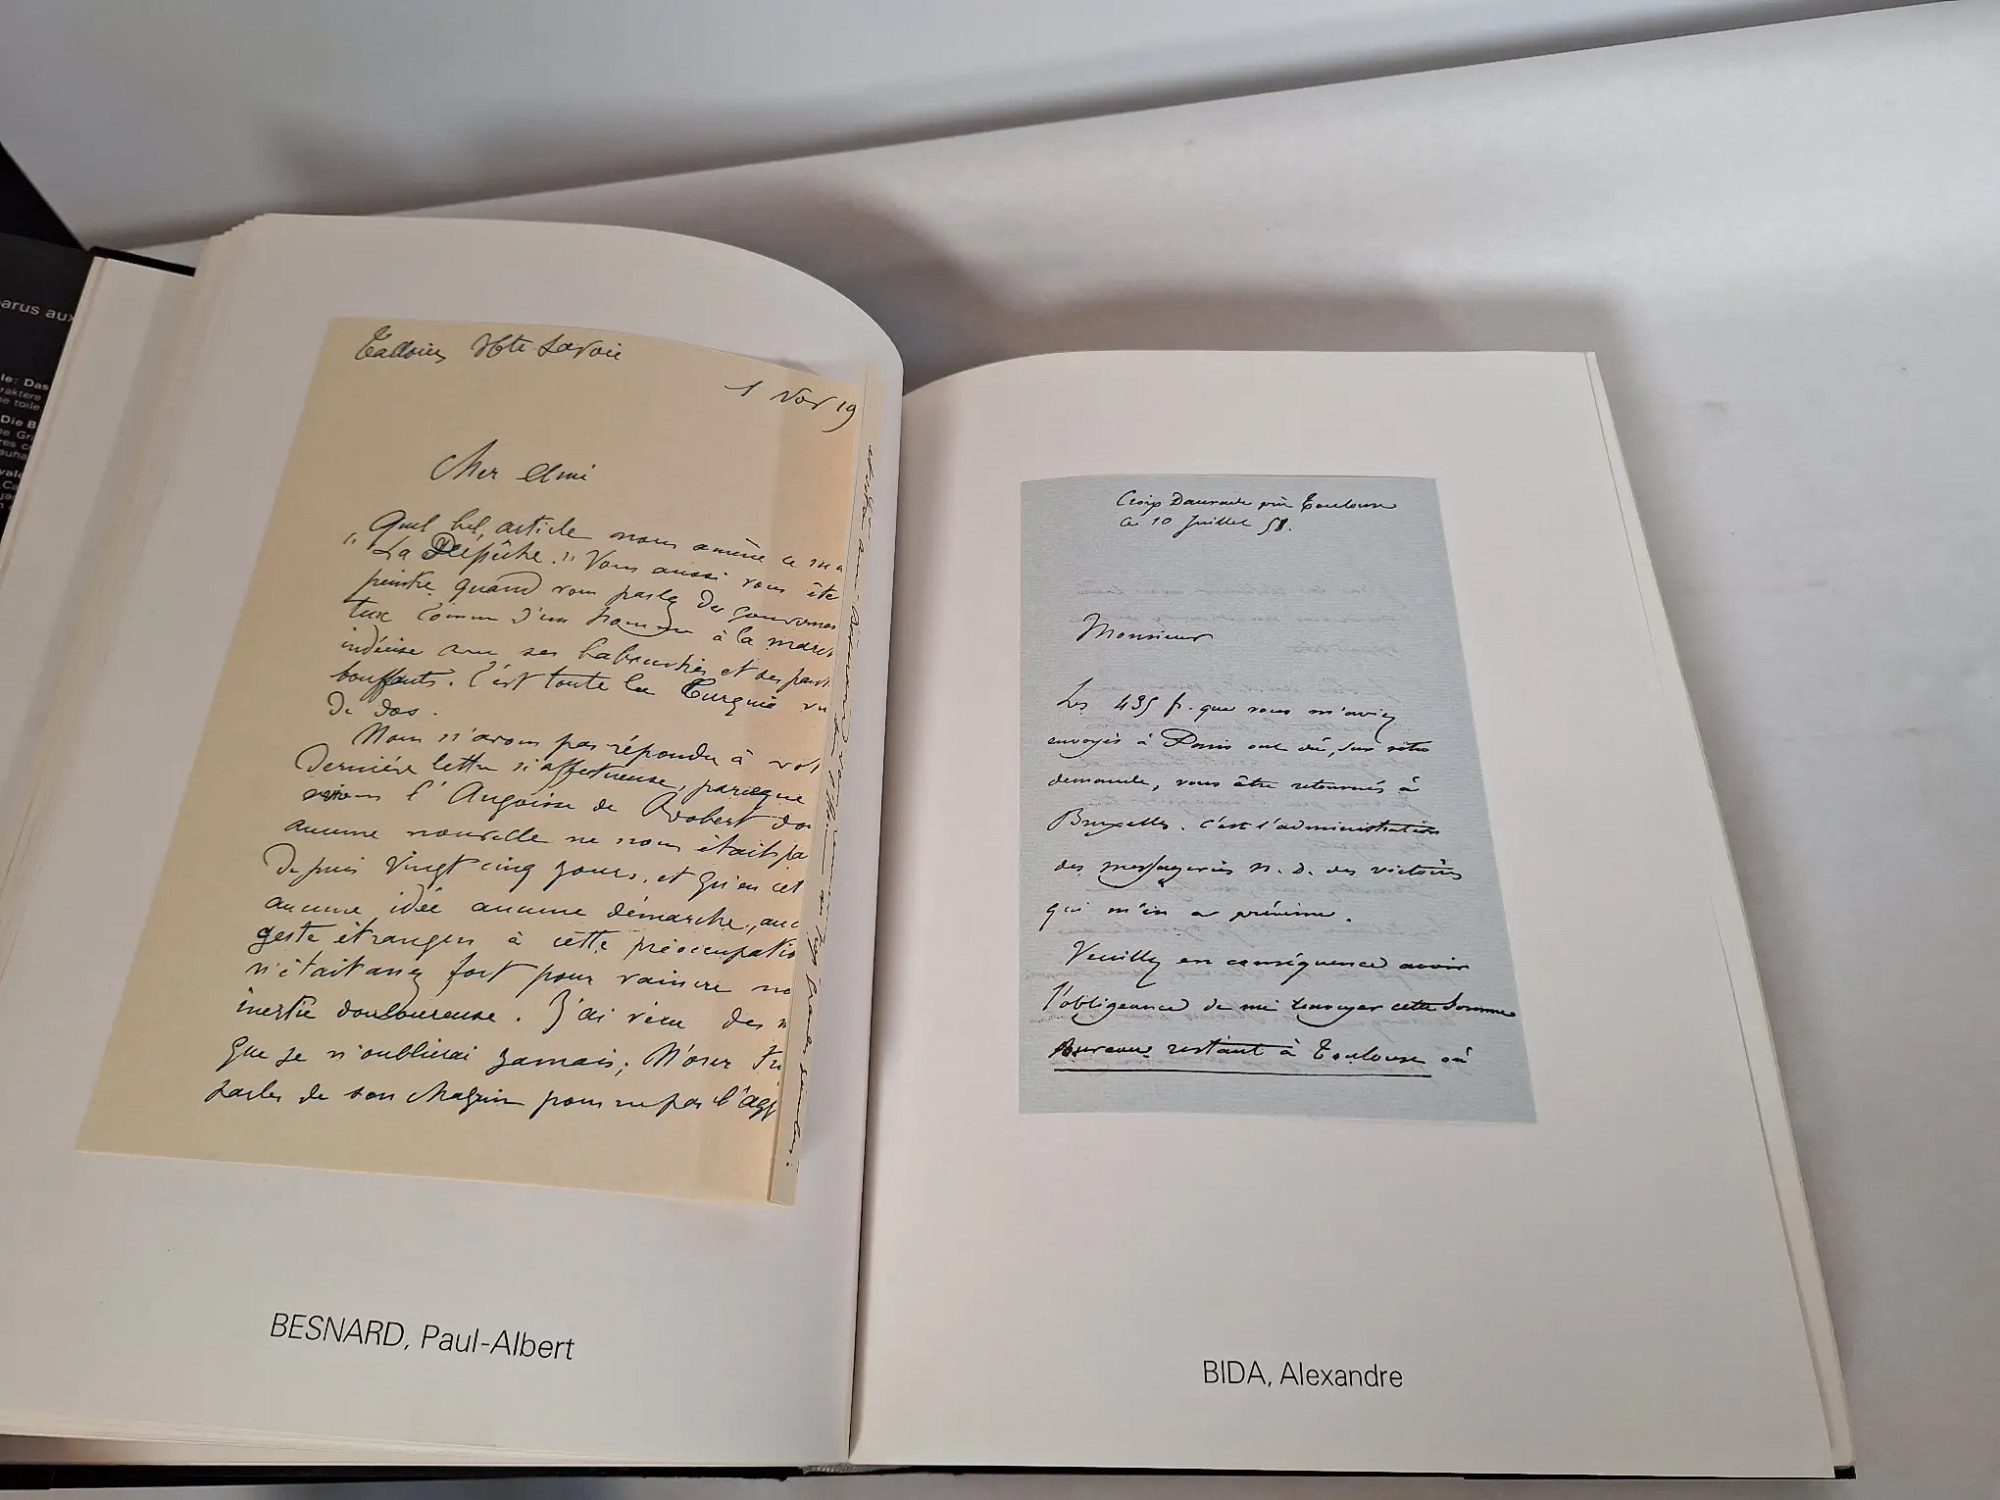 arus aux
le: Das
raktere
ne toile
Die B
Talloires Hte Savoie
1 Nov 19
Cher Ami
Quel bel article nous amène ce ma
"La Dépêche." Vous aussi vous ête
peintre quand vous parlez du gouverne
teur comme d'un homme à la march
indécise avec ses babouches et des pant
bouffants. C'est toute la Turquie vu
de dos.
Nous n'avons pas répondu à vot
dernière lettre si affectueuse, parceque
l'Angoisse de Robert do
aucune nouvelle ne nous était pa
depuis vingt cinq jours, et qu'en cet
aucune idée aucune démarche, auc
geste étrangers à cette préoccupatio
n'était assez fort pour vaincre no
inertie douloureuse. J'ai vécu des
que je n'oublierai jamais; N'oser
parler de son chagrin pour ne pas l'agg
BESNARD, Paul-Albert
Croix Daurade près Toulouse
ce 10 Juillet 58.
Monsieur
Les 435 fr. que vous m'aviez
envoyés à Paris ont dû, sur votre
demande, vous être retournés à
Bruxelles. c'est l'administration
des messageries N. D. des victoires
qui m'en a prévenu.
Veuillez en conséquence avoir
l'obligeance de me renvoyer cette somme
bureau restant à Toulouse où
BIDA, Alexandre